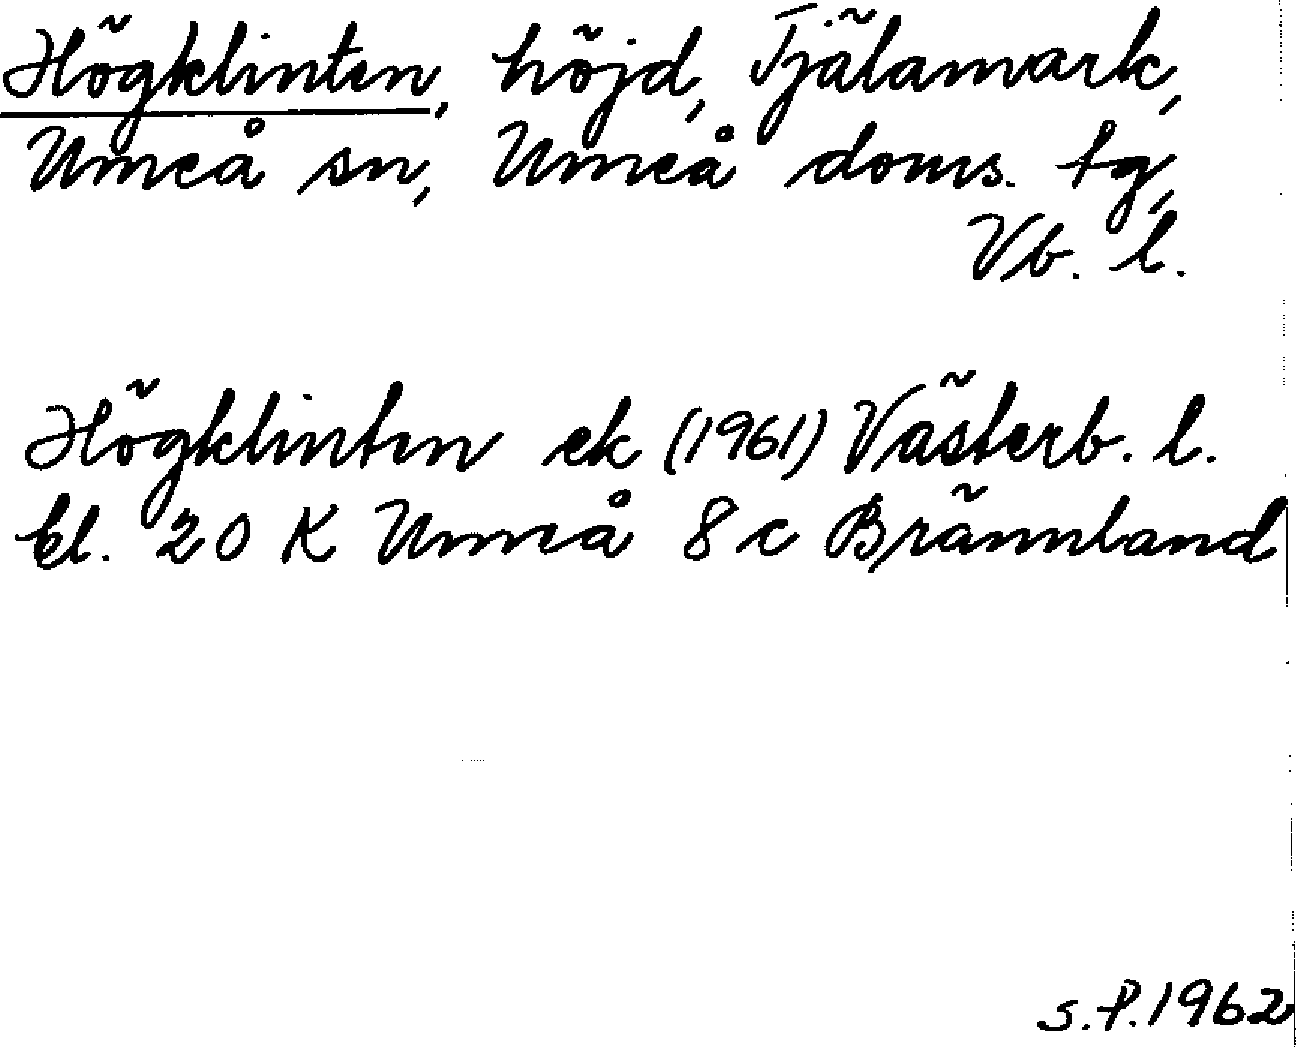 Högklinten, höjd, Tjälamark,
Umeå sn, Umeå doms. tg,
Vb. l.
Högklinten ek (1961) Västerb. l.
bl. 20 K Umeå 8 c Brännland
S.P. 1962